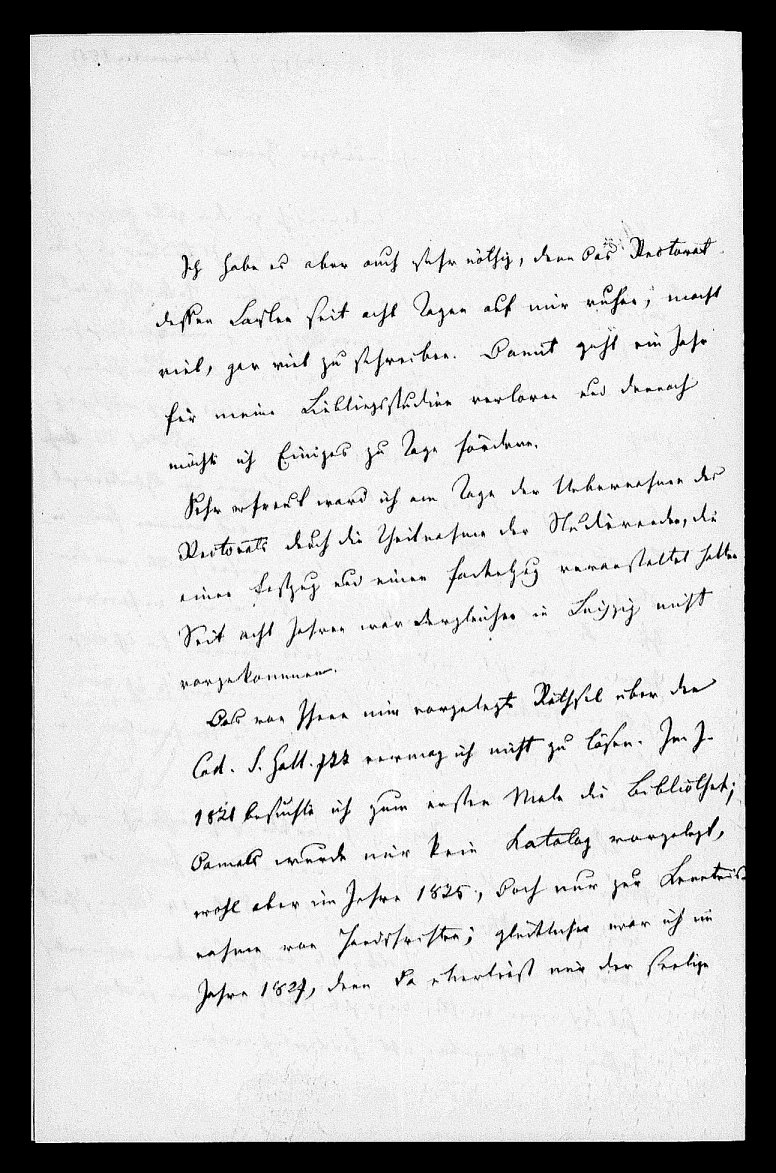 Ich habe es aber auch sehr nöthig, denn das Rectorat
dessen Lasten seit acht Tagen auf mir ruhen, macht
viel, gar viel zu schreiben. Damit geht ein Jahr
für meine Lieblingsstudien verloren und dennoch
möchte ich Einiges zu Tage fördern.
Sehr erfreut ward ich am Tage der Uebernahme des
Rectorats durch die Theilnahme der Studirenden, die
einen Festzug und einen Fackelzug veranstaltet hatten.
Seit acht Jahren war dergleichen in Leipzig nicht
vorgekommen.
Das von Ihnen mir vorgelegte Räthsel über den
Cod. S. Gall. vermag ich nicht zu lösen. Im J.
1821 besuchte ich zum ersten Male die Bibliothek;
damals wurde mir kein Katalog vorgelegt,
wohl aber im Jahre 1825, doch nur zur Kenntnis-
nahme von Handschriften; glücklicher war ich im
Jahre 1827, denn da überliess mir der seelige